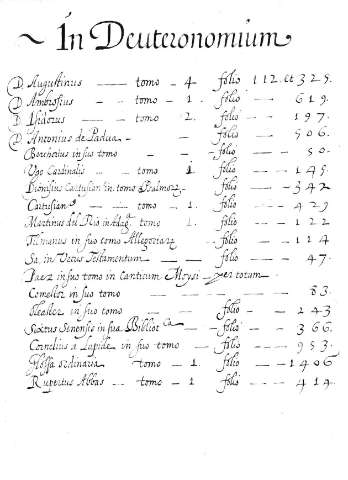 ~ In Deuteronomium
D. Augustinus — tomo - 4. folio 112. et 325.
D. Ambrosius - - tomo - 1. folio - - 619.
D. Isidorus — tomo 2. folio - - 197.
D. Antonius de Padua - - - folio - - 506.
Borchetus in suo tomo - - folio - - 50.
Ugo Cardinalis - tomo 1 folio - - 145.
Dionisius Cartusian in tomo Psalmorz - 342
Cartusianus - - tomo - 1. folio - - 429
Martinus del Rio in Adag. tomo 1. folio - - 122
Titlmanus in suo tomo Allegoriarz - folio - - 114
Sa, in Vetus Testamentum — - folio - - 47.
Paez in suo tomo in Canticum Moysi - per totum -
Comelior in suo tomo - - - - - - 83.
Oleaster in suo tomo - - folio - - 243
Sixtus Senensis in sua Bibliotca - folio - - 366.
Cornelius a Lapide in suo tomo - folio - - 953.
Glossa ordinaria - tomo - 1. folio - - 1406
Rupertus Abbas - - tomo - 1. folio - - 414.